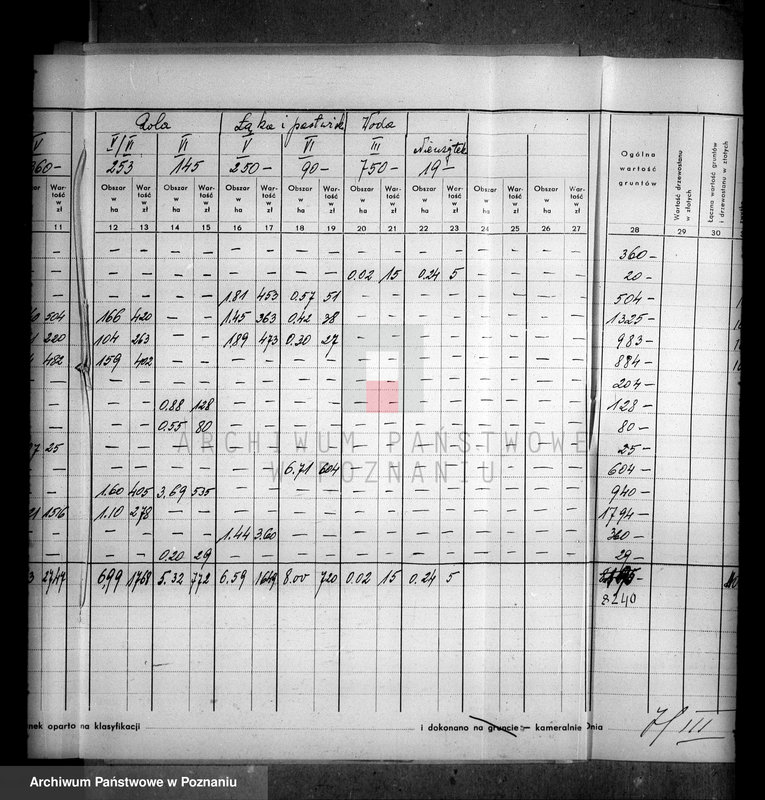 Rola Łąka i pastwisk Woda
V V/VI VI V VI III Nieużytek
360- 253 145 250- 90- 750- 19-
Obszar w ha Wartość w zł Obszar w ha Wartość w zł Obszar w ha Wartość w zł Obszar w ha Wartość w zł Obszar w ha Wartość w zł Obszar w ha Wartość w zł Obszar w ha Wartość w zł Obszar w ha Wartość w zł Ogólna wartość gruntów Wartość drzewostanu w złotych Łączna wartość gruntów i drzewostanu w złotych
11 12 13 14 15 16 17 18 19 20 21 22 23 24 25 26 27 28 29 30
— — — — — — — — — — — — — — — — — 360-
— — — — — — — — — 0.02 15 0.24 5 — — — — 20-
— — — — — 1.81 453 0.57 51 — — — — — — — — 504-
504 166 420 — — 1.45 363 0.42 38 — — — — — — — — 1325-
220 104 263 — — 1.89 473 0.30 27 — — — — — — — — 983-
482 159 402 — — — — — — — — — — — — — — 884-
— — — — — — — — — — — — — — — — — 204-
— — — 0.88 128 — — — — — — — — — — — — 128-
— — — 0.55 80 — — — — — — — — — — — — 80-
25 — — — — — — — — — — — — — — — — 25-
— — — — — — — 6.71 604 — — — — — — — — 604-
— 1.60 405 3.69 535 — — — — — — — — — — — — 940-
1516 1.10 278 — — — — — — — — — — — — — — 1794-
— — — — — 1.44 360 — — — — — — — — — — 360-
— — — 0.20 29 — — — — — — — — — — — — 29-
2747 6,99 1768 5.32 772 6.59 1649 8.00 720 0.02 15 0.24 5
8240
nek oparto na klasyfikacji i dokonano na gruncie — kameralnie dnia
7/III
ARCHIWUM PAŃSTWOWE
W POZNANIU
Archiwum Państwowe w Poznaniu